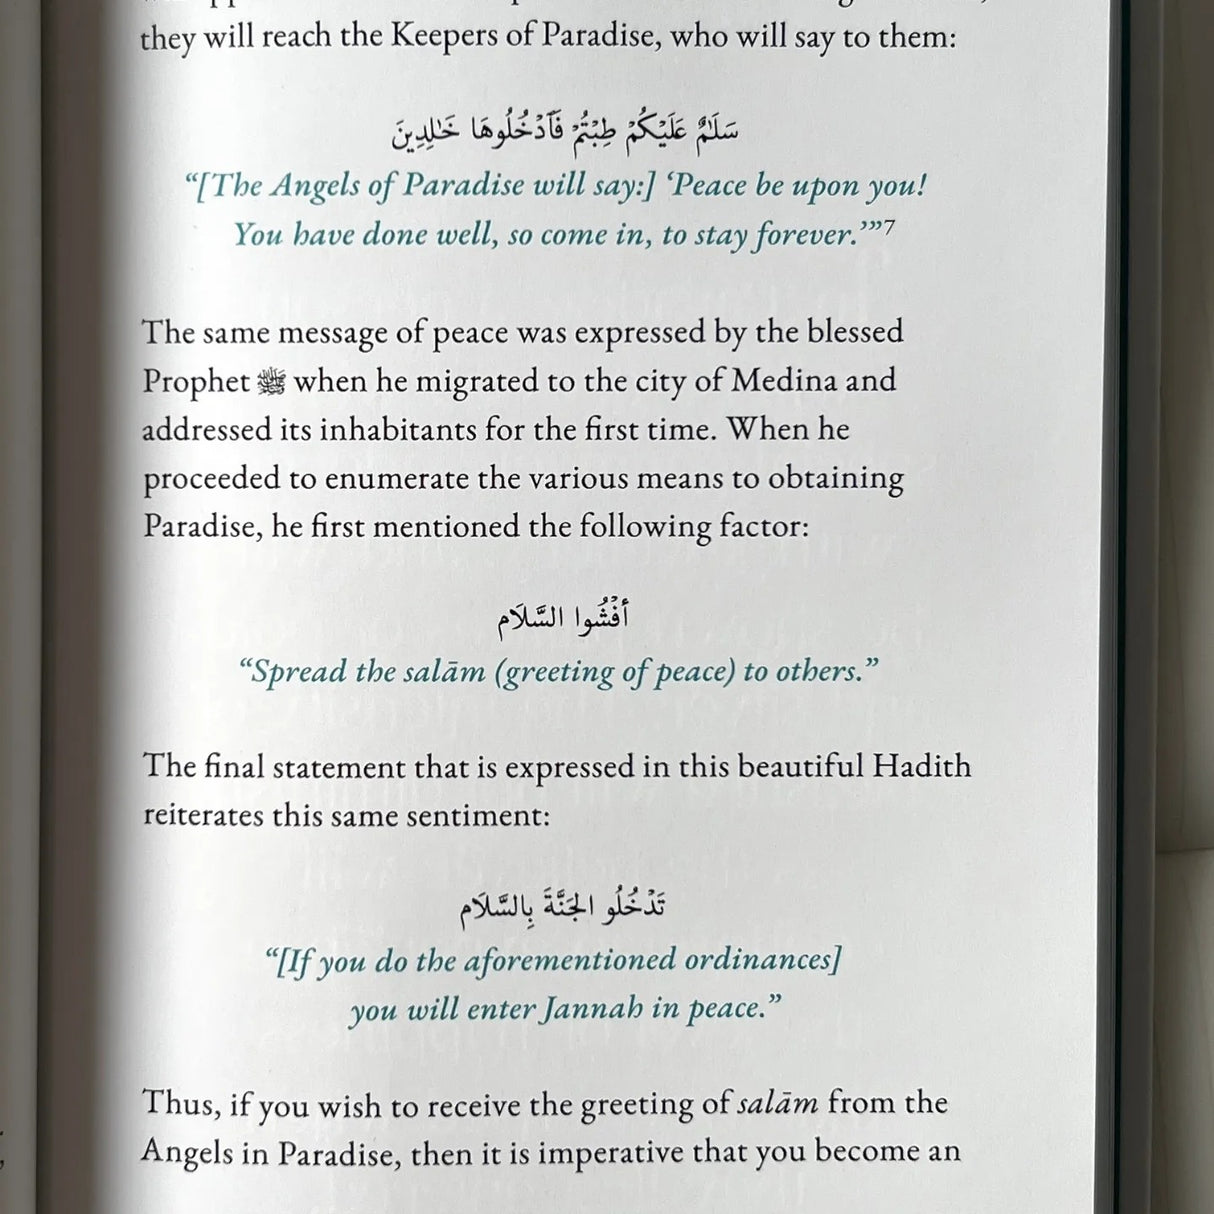 they will reach the Keepers of Paradise, who will say to them:
سَلَٰمٌ عَلَيْكُمْ طِبْتُمْ فَٱدْخُلُوهَا خَٰلِدِينَ
“[The Angels of Paradise will say:] ‘Peace be upon you!
You have done well, so come in, to stay forever.’”7
The same message of peace was expressed by the blessed
Prophet ﷺ when he migrated to the city of Medina and
addressed its inhabitants for the first time. When he
proceeded to enumerate the various means to obtaining
Paradise, he first mentioned the following factor:
أَفْشُوا السَّلَام
“Spread the salām (greeting of peace) to others.”
The final statement that is expressed in this beautiful Hadith
reiterates this same sentiment:
تَدْخُلُو الجَنَّةَ بِالسَّلَام
“[If you do the aforementioned ordinances]
you will enter Jannah in peace.”
Thus, if you wish to receive the greeting of salām from the
Angels in Paradise, then it is imperative that you become an